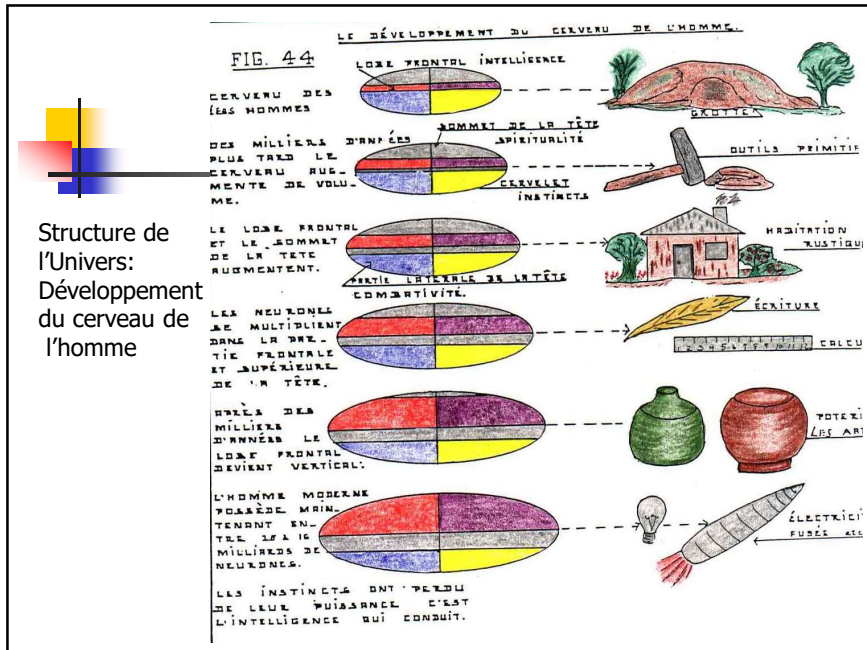 LE DÉVELOPPEMENT DU CERVEAU DE L'HOMME.
FIG. 44
LOBE FRONTAL INTELLIGENCE
CERVEAU DES
HOMMES
GROTTE
Structure de
l'Univers:
Développement
du cerveau de
l'homme
DES MILLIERS D'ANNÉES
PLUS TARD LE
CERVEAU AUG-
MENTE DE VOLU-
ME.
SOMMET DE LA TÊTE
SPIRITUALITÉ
CERVELET
INSTINCTS
OUTILS PRIMITIF
LE LOBE FRONTAL
ET LE SOMMET
DE LA TETE
AUGMENTENT.
PARTIE LATERALE DE LA TÊTE
COMBATIVITÉ.
HABITATION
RUSTIQUE
LES NEURONES
SE MULTIPLIENT
DANS LA PAR-
TIE FRONTALE
ET SUPÉRIEURE
DE LA TÊTE.
ÉCRITURE
1 2 3 4 5 6 7 8 9 10 11 12
CALCU
APRÈS DES
MILLIERS
D'ANNÉES LE
LOBE FRONTAL
DEVIENT VERTICAL.
POTERI
LES ART
L'HOMME MODERNE
POSSÈDE MAIN-
TENANT EN-
TRE 15 À 16
MILLIARDS DE
NEURONES.
ÉLECTRICI
FUSÉE etc
LES INSTINCTS ONT PERDU
DE LEUR PUISSANCE C'EST
L'INTELLIGENCE QUI CONDUIT.